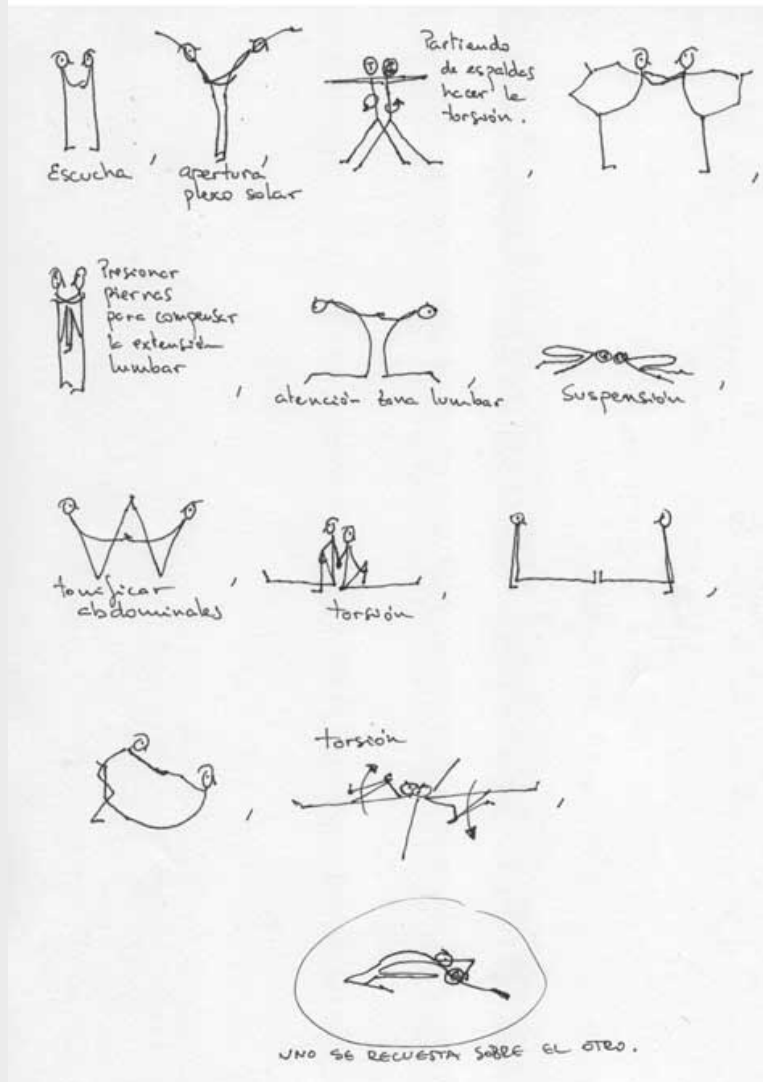 Escucha,
apertura
plexo solar
Partiendo
de espaldas
hacer la
torsión.
,
,
Presionar
piernas
para compensar
la extensión
lumbar
,
atención zona lumbar
,
Suspensión
,
tonificar
abdominales
,
torsión
,
,
,
torsión
,
UNO SE RECUESTA SOBRE EL OTRO.